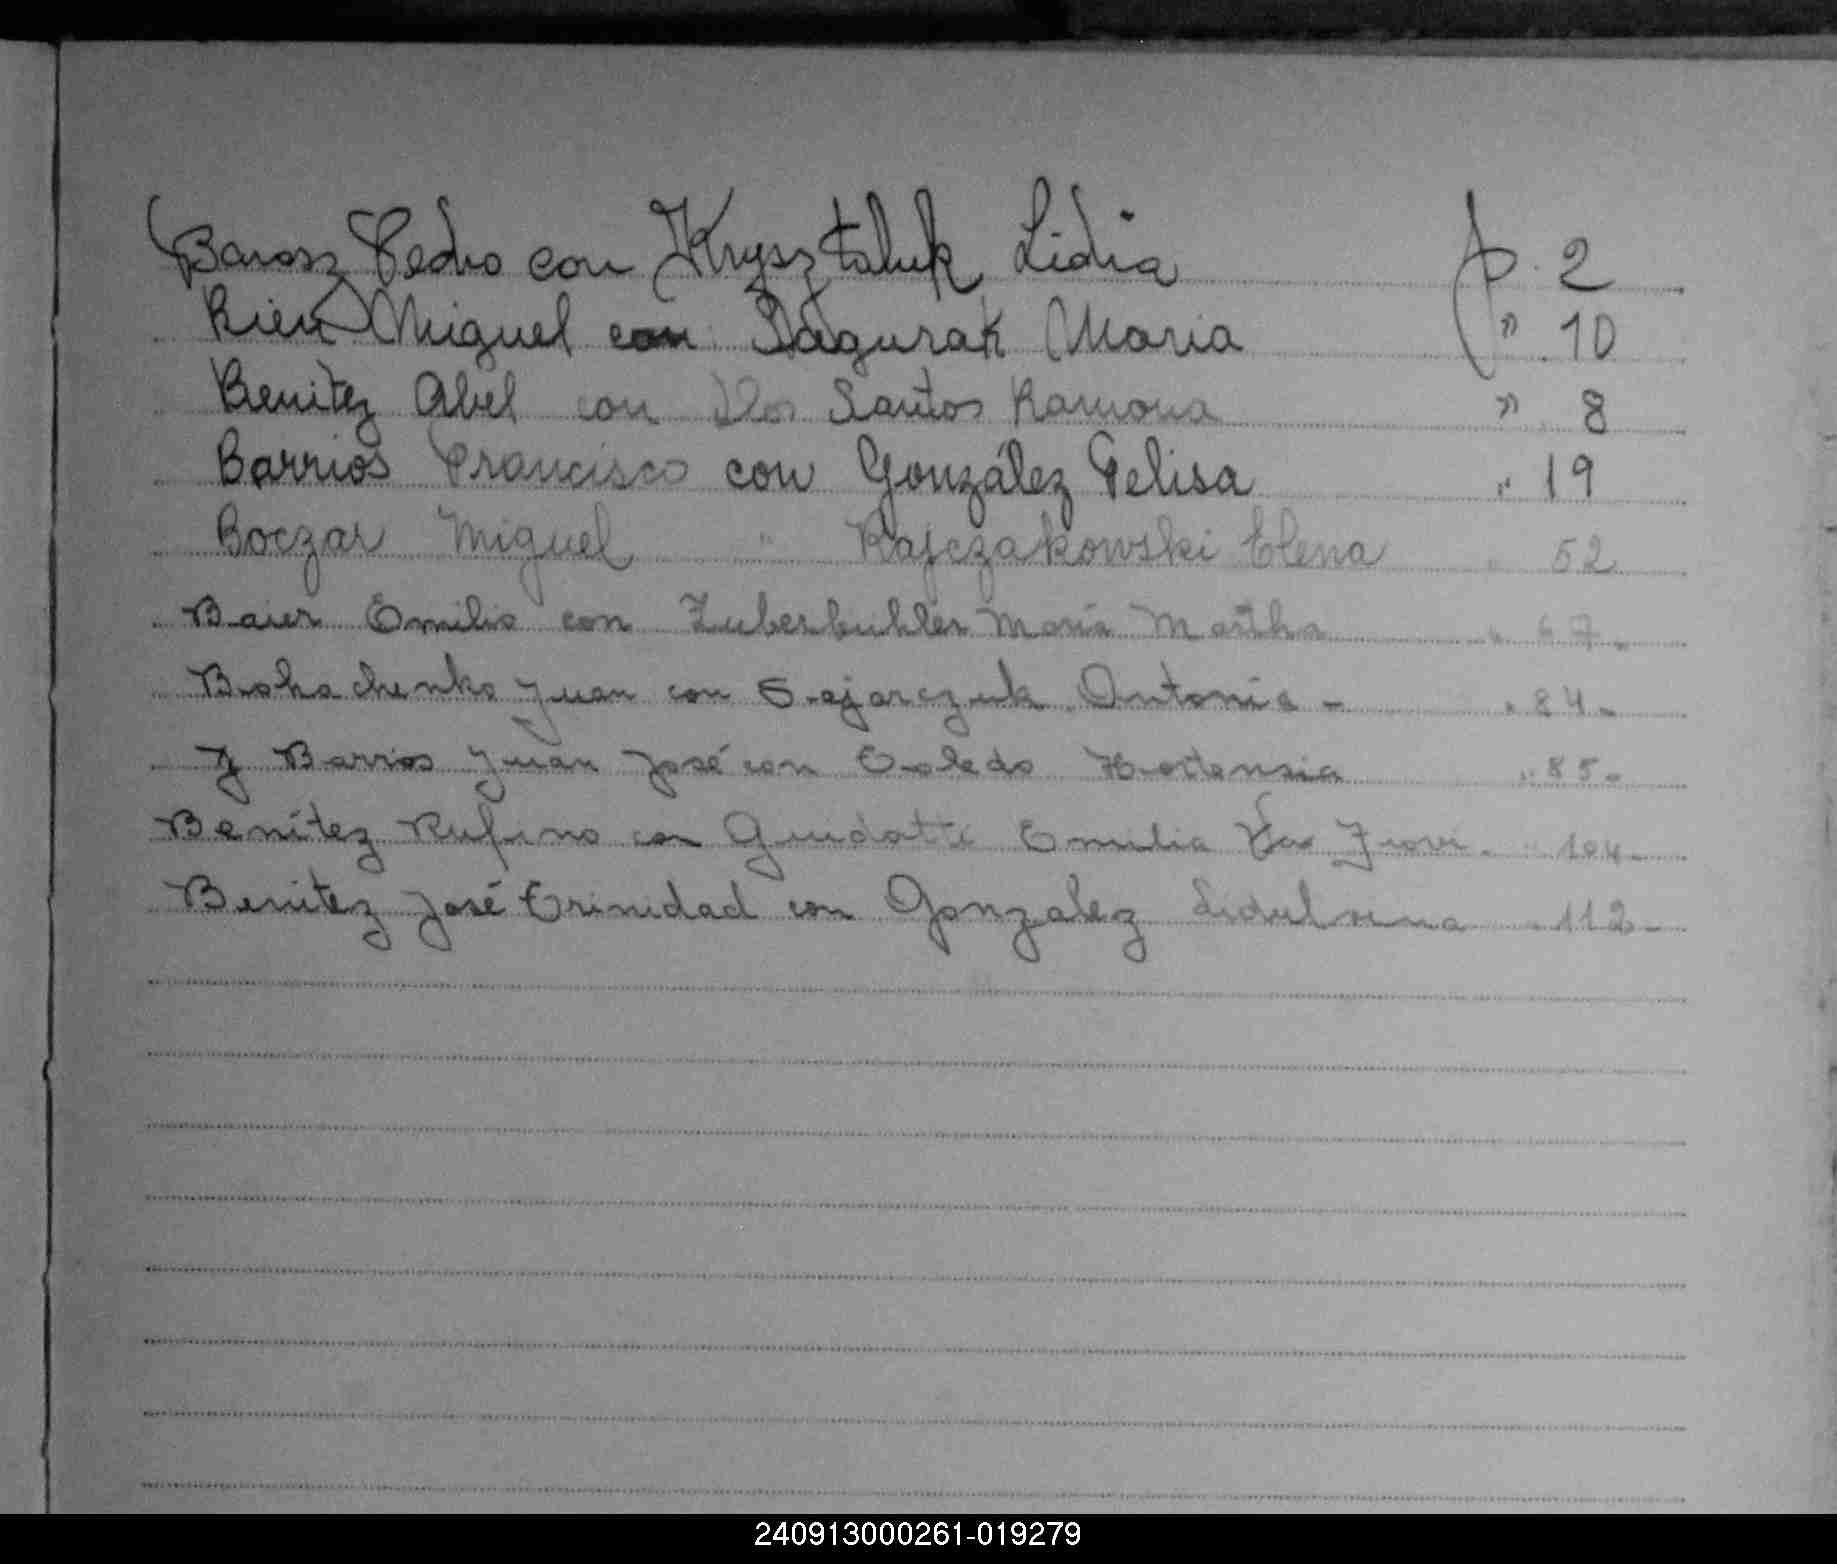 Barosz Pedro con Krysztaluk Lidia p. 2
Rieu Miguel con Sagurak Maria " 10
Benitez Abel con Dos Santos Ramona " 8
Barrios Francisco con González Felisa " 19
Boczar Miguel " Rajczakowski Elena " 52
Baier Emilio con Zuberbuhler Maria Martha " 67-
Bohachenko Juan con Juan Antonia - " 84-
Barrios Juan José con Toledo Hortensia " 85-
Benítez Rufino con Guidotti Emilia 104-
Benitez José Trinidad con Gonzalez 112-
240913000261-019279